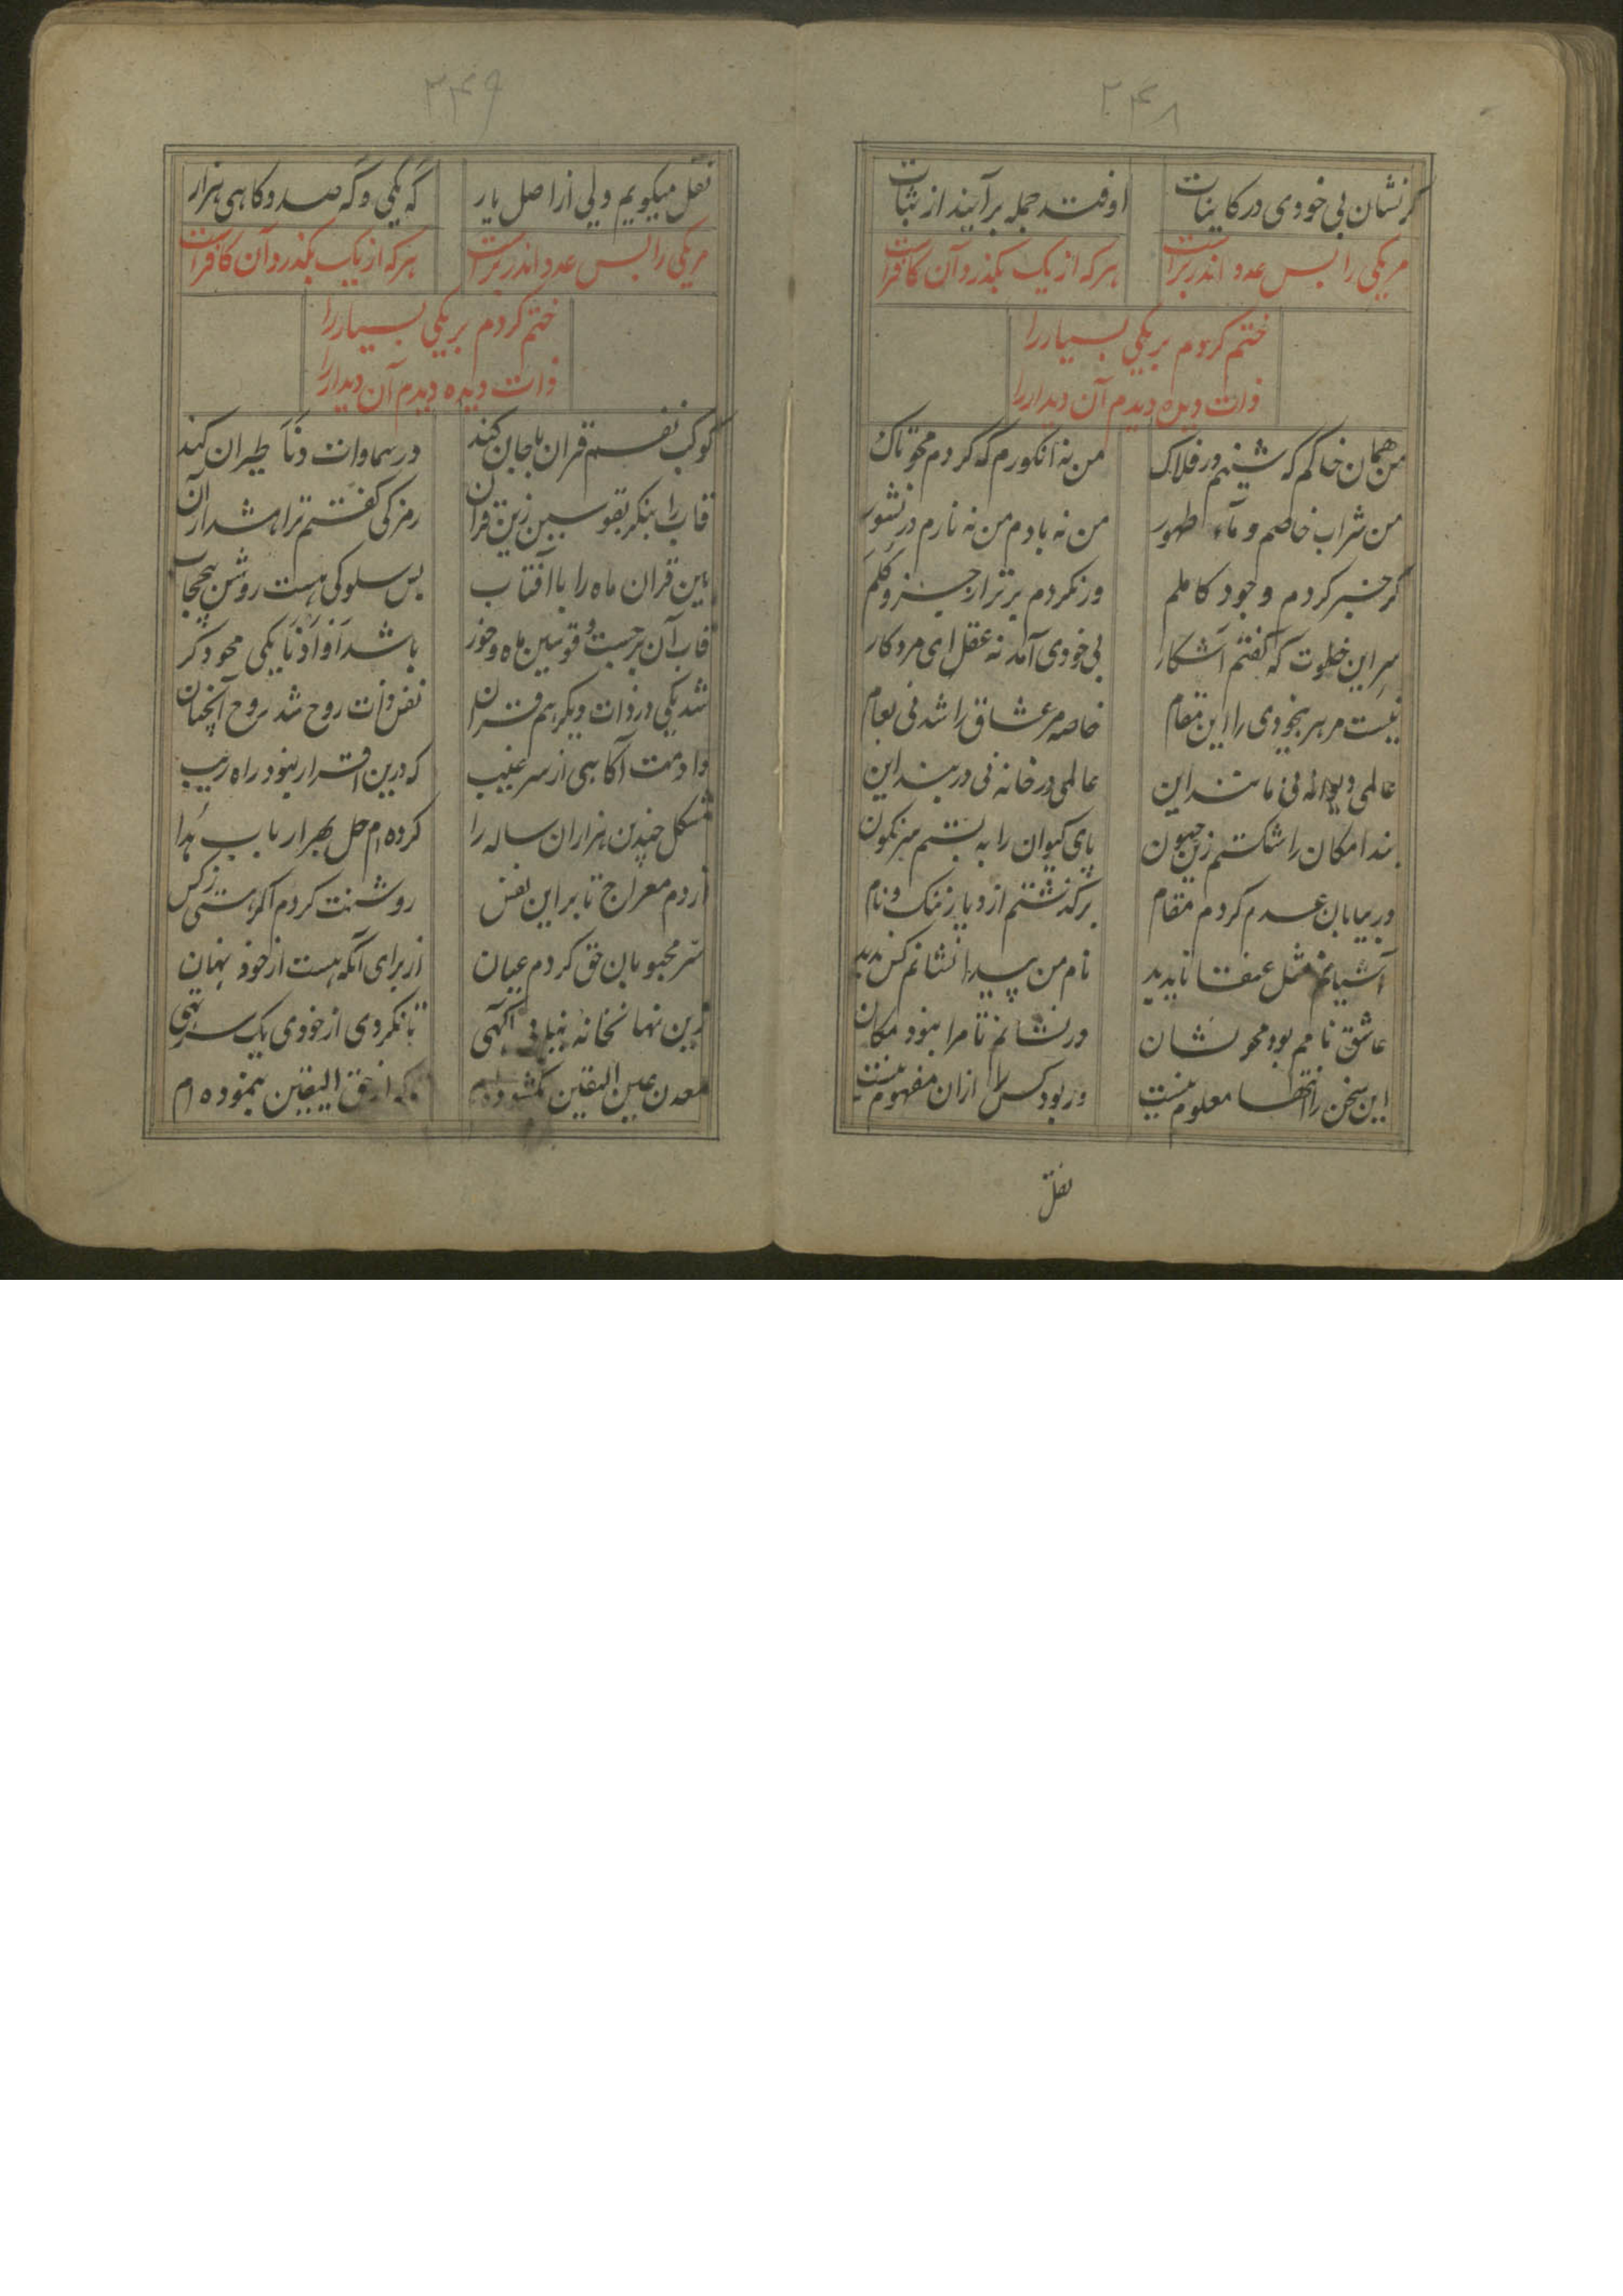 ۲۴۸
گر نشان بی خودی در کاینات اوفتد جمله برآیند از ثبات
مر یکی را بس عدد اندر برست هر که از یک بگذرد آن کافرست
ختم کردم بر یکی بسیار را
ذات دیده دیدم آن دیدار را
من همان خاکم که شینم در فلاک من نه انگورم که گردم محو تاک
من شراب خاصم و ماء طهور من نه بادم من نه نارم در نشور
گر خبر کردم وجود کاملم ور نکردم برتر از جزو و کلم
سر این خلوت که گفتم آشکار بی خودی آمد نه عقل ای مرد کار
نیست مر هر بیخودی را این مقام خاصه مر عشاق را شد نی بعام
عالمی دیوانه نی مانند این عالمی در خانه نی در بند این
بند امکان را شکستم زین جنون پای کیوان را به بستم سرنگون
در بیابان عدم کردم مقام برگذشتم از دیار ننگ و نام
آشیانم مثل عنقا ناپدید نام من پیدا نشانم کس ندید
عاشق نامم بود محو نشان در نشانم تا مرا نبود مکان
این سخن را انتها معلوم نیست در بود کس را ازان مفهوم نیست
نقل
۲۴۹
نقل میگویم ولی از اصل یار گه یکی و گه صد و گاهی هزار
مر یکی را بس عدد اندر برست هر که از یک بگذرد آن کافرست
ختم کردم بر یکی بسیار را
ذات دیده دیدم آن دیدار را
کوکب نفسم قران با جان کند در سماوات دنا طیران کند
قاب را بنگر بقوسین زین قران رمزکی گفتم ترا باشد ازان
بین قران ماه را با آفتاب بس سلوکی هست روشن بیحجاب
قاب آن برجست و قوسین ماه و خور باشد او ادنا یکی محو دگر
شد یکی در ذات دیگر هم قران نفس ذات روح شد روح آنچنان
دادمت آگاهی از سر غیب که درین اقرار نبود راه ریب
مشکل چندین هزاران ساله را کرده ام حل بهر ارباب هدا
از دم معراج تا بر این نفس روشنت کردم اگر هستی ز کس
سر محبوبان حق کردم عیان از برای آنکه هست از خود نهان
زین نهانخانه نیابی آگهی تا نگردی از خودی یک سر تهی
معدن عین الیقین بگشوده ام بلکه از حق الیقین بنموده ام